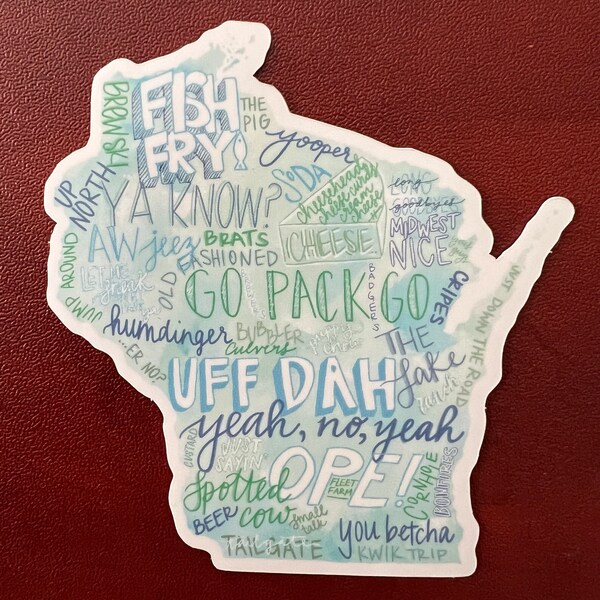 BROWSKI
FISH
FRY!
THE
PIG
yooper
UP
NORTH
YA KNOW?
SODA
cheesehead
cheese curds
cream
cheese
CHEESE
long
goodbyes
MIDWEST
NICE
AW jeez
BRATS
OLD
FASHIONED
JUMP
AROUND
GO PACK GO
BADGERS
CRIPES
JUST DOWN THE ROAD
humdinger
BUBBLER
Culvers
puppy
chow
THE
Lake
...ER NO?
UFF DAH
yeah, no, yeah
CUSTARD
JUST
SAYIN
OPE!
FLEET
FARM
CORNHOLE
BONFIRES
Spotted
Cow
BEER
small
talk
you betcha
TAILGATE
KWIK TRIP